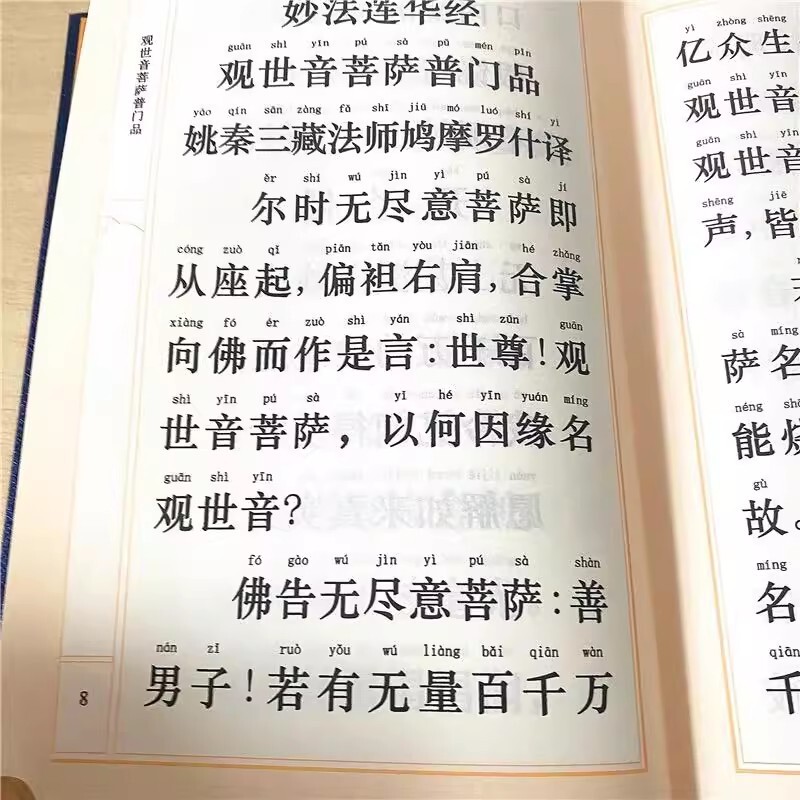 妙法莲华经
观世音菩萨普门品
guān shì yīn pú sà pǔ mén pǐn
观世音菩萨普门品
yáo qín sān zàng fǎ shī jiū mó luó shí yì
姚秦三藏法师鸠摩罗什译
ěr shí wú jìn yì pú sà jí
尔时无尽意菩萨即
cóng zuò qǐ piān tǎn yòu jiān hé zhǎng
从座起,偏袒右肩,合掌
xiàng fó ér zuò shì yán shì zūn guān
向佛而作是言:世尊!观
shì yīn pú sà yǐ hé yīn yuán míng
世音菩萨,以何因缘名
guān shì yīn
观世音?
fó gào wú jìn yì pú sà shàn
佛告无尽意菩萨:善
nán zǐ ruò yǒu wú liàng bǎi qiān wàn
男子!若有无量百千万
8
yì zhòng shēng
亿众生
guān shì yīn
观世音
guān shì yīn
观世音
shēng jiē
声,皆
sà míng
萨名
néng
能烧
gù
故。
míng
名
qiān
千